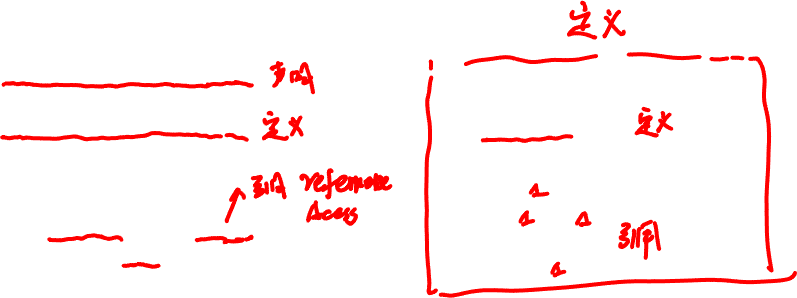 声明
定义
引用 reference
Access
定义
定义
引用